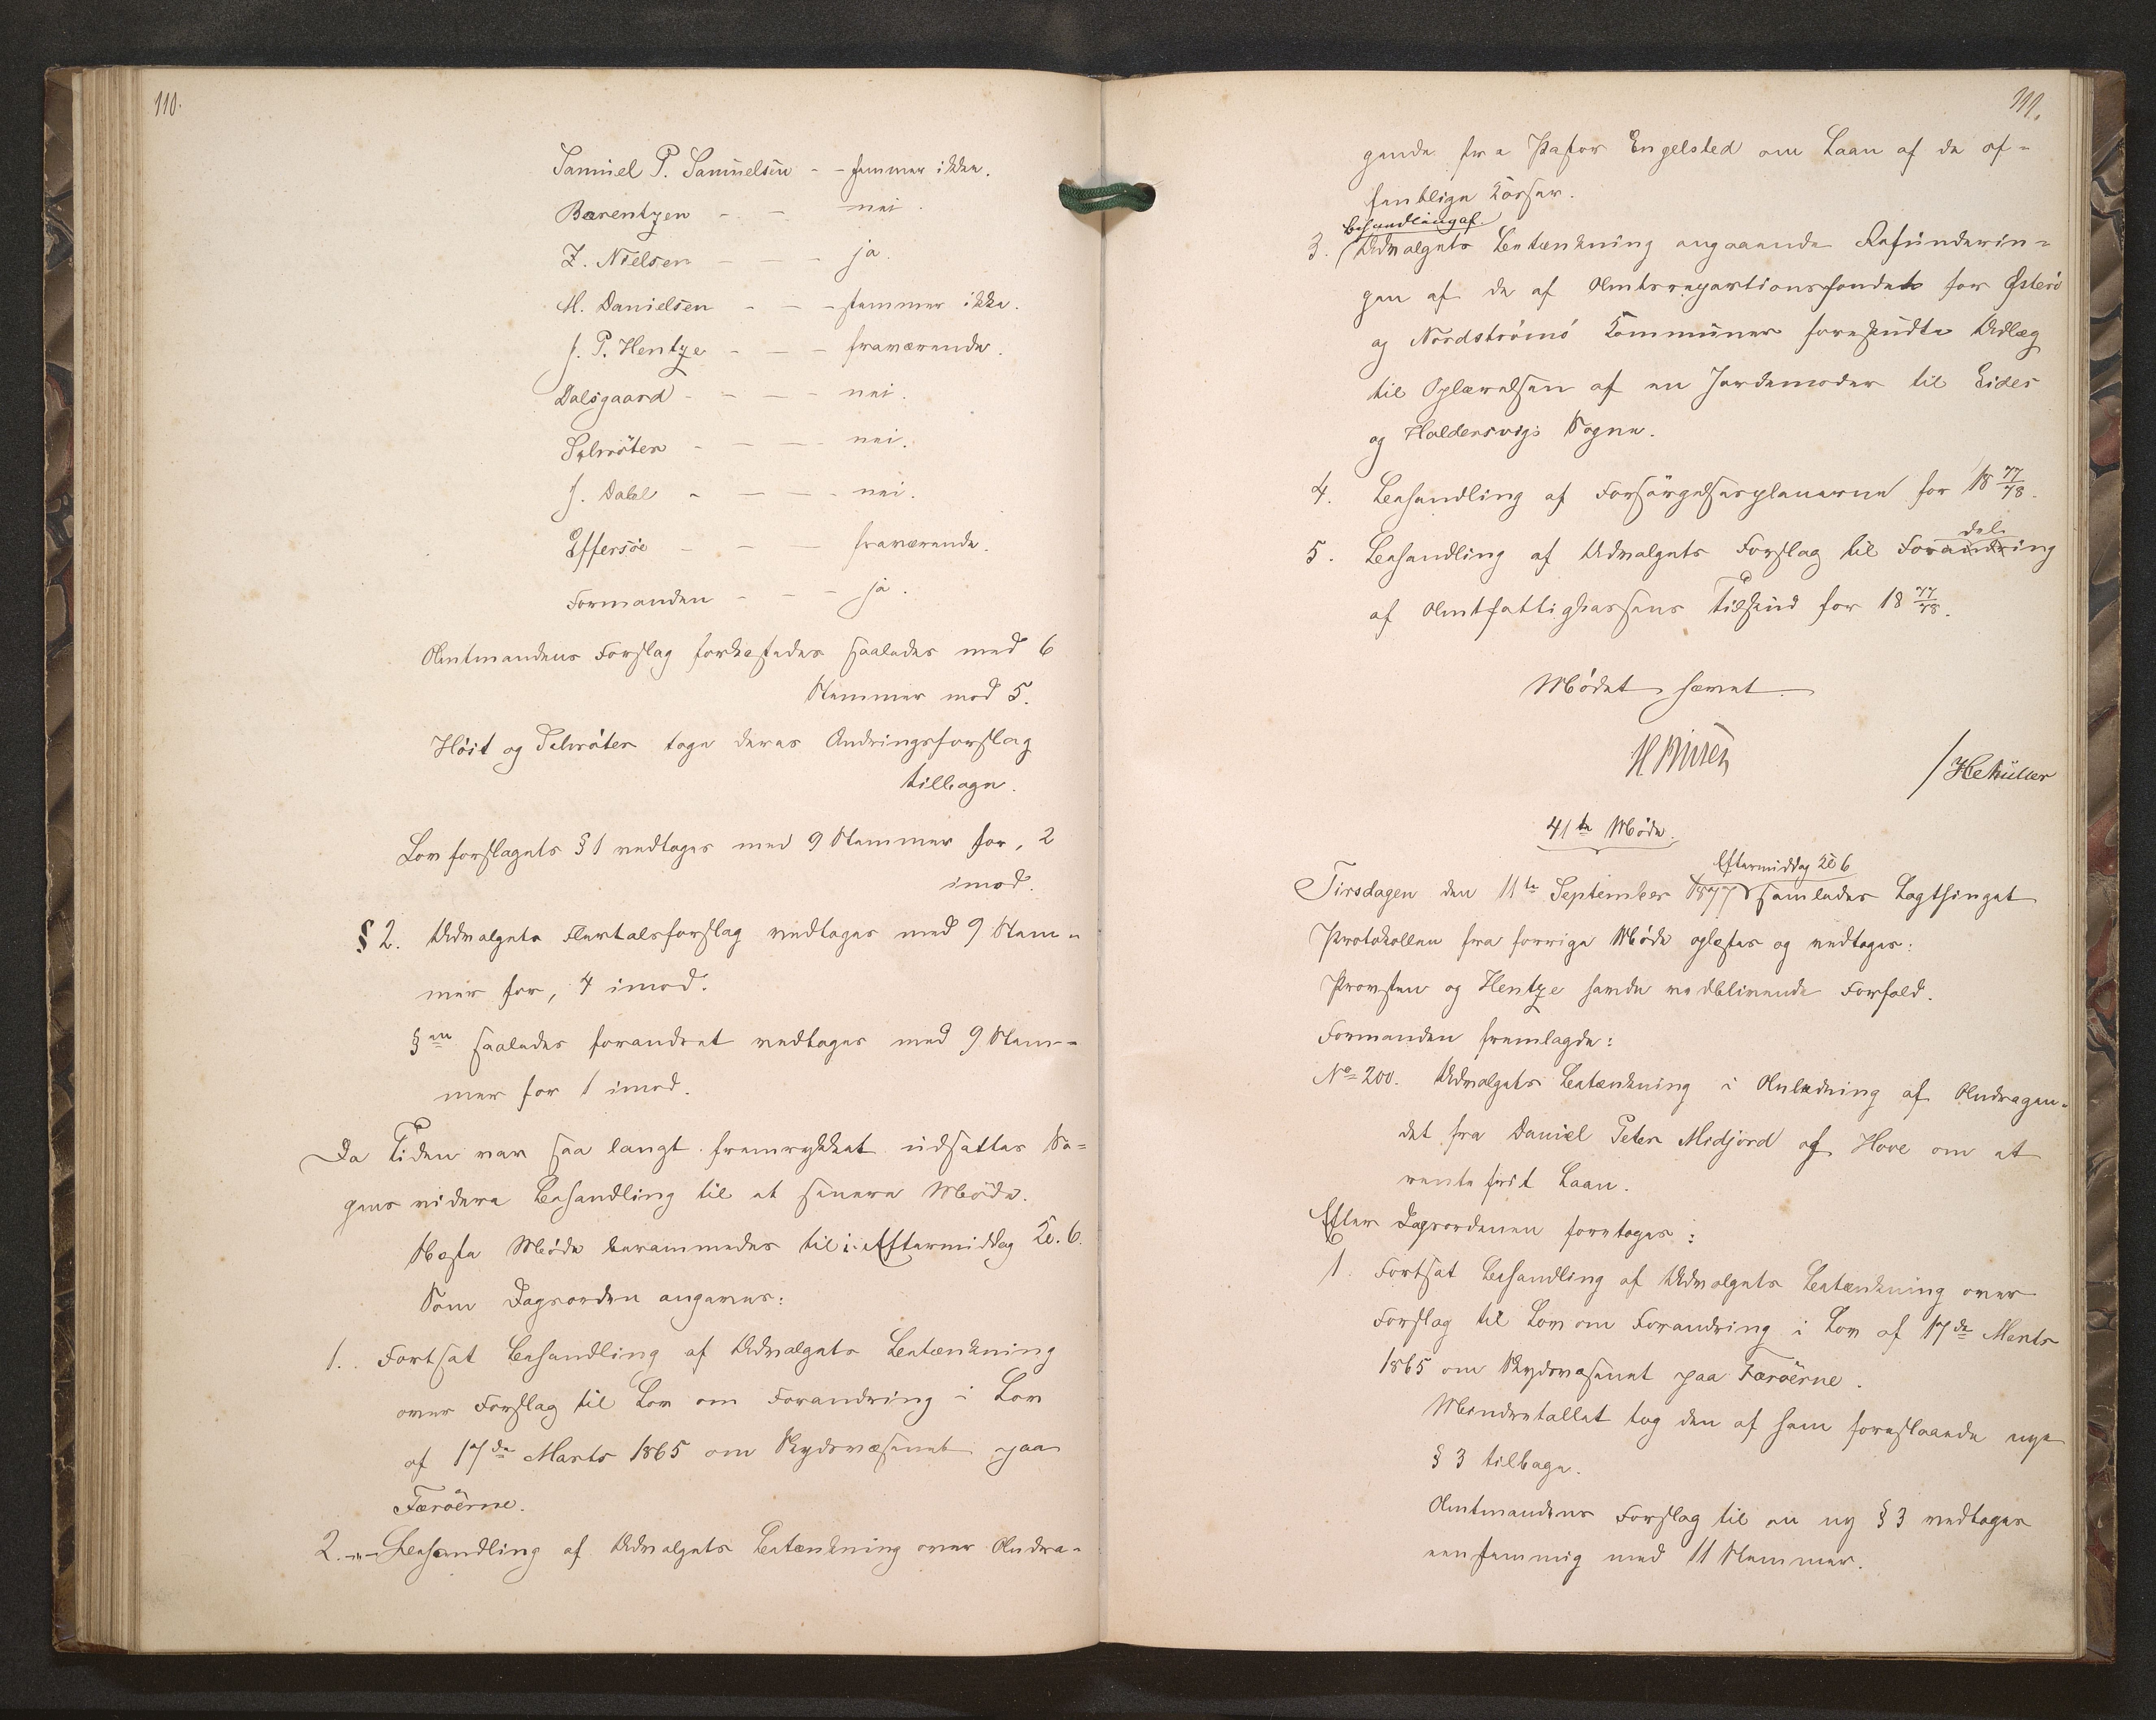 110.
Samuel P. Samuelsen - - stemmer ikke.
Bærentzen - - nei.
Z. Nielsen - - - ja.
M. Danielsen - - - stemmer ikke.
J. P. Hentze - - - fraværende.
Dalsgaard - - - - nei.
Schrøter - - - - nei.
J. Dahl - - - - nei.
Effersøe - - - fraværende.
Formanden - - - ja.
Amtmandens Forslag forkastedes saaledes med 6
Stemmer mod 5.
Høit og Schrøter toge deres Ændringsforslag
tilbage.
Lovforslagets § 1 vedtoges med 9 Stemmer for, 2
imod.
§ 2. Udvalgets Flertalsforslag vedtoges med 9 Stem=
mer for, 4 imod.
§en saaledes forandret vedtoges med 9 Stem=
mer for 1 imod.
Da Tiden var saa langt fremrykket udsattes Sa=
gens videre Behandling til et senere Møde.
Næste Møde berammedes til i Eftermiddag Kl. 6.
Som Dagsorden angaves:
1. Fortsat Behandling af Udvalgets Betænkning
over Forslag til Lov om Forandring i Lov
af 17de Marts 1865 om Skydsvæsenet paa
Færøerne.
2. Behandling af Udvalgets Betænkning over Andra=
111.
gende fra Pastor Engelsted om Laan af de of=
fentlige Kasser.
Behandling af
3. Udvalgets Betænkning angaaende Refunderin=
gen af de af Amtsrepartionsfondet for Østerø
og Nordstrømø Kommuner forskudte Udlæg
til Oplærelsen af en Jordemoder til Eides
og Haldersvigs Sogne.
4. Behandling af Forsørgelsesplanerne for 18 77/78.
5. Behandling af Udvalgets Forslag til Forandring
del
af Amtsfattigkassens Tilskud for 18 77/78.
Mødet hævet.
H Müller
41te Møde.
Eftermiddag Kl 6
Tirsdagen den 11te September 1877 samledes Lagthinget
Protokollen fra forrige Møde oplæstes og vedtoges:
Provsten og Hentze havde vedblivende Forfald.
Formanden fremlagde:
No 200. Udvalgets Betænkning i Anledning af Andragen=
det fra Daniel Peter Midjord af Hove om et
rentefrit Laan.
Efter Dagsordenen foretoges:
1. Fortsat Behandling af Udvalgets Betænkning over
Forslag til Lov om Forandring i Lov af 17de Marts
1865 om Skydsvæsenet paa Færøerne.
Mindretallet tog den af ham foreslaaede nye
§ 3 tilbage.
Amtmandens Forslag til en ny § 3 vedtoges
eenstemmig med 11 Stemmer.